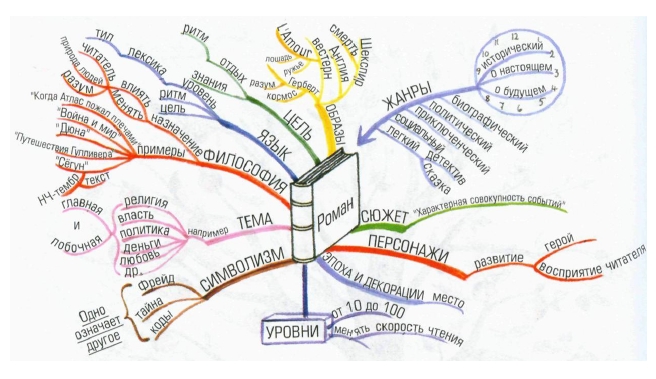 Роман
ЖАНРЫ
исторический
о настоящем
о будущем
12
1
2
3
4
5
6
7
8
9
10
11
биографический
политический
приключенческий
социальный
легкий
детектив
сказка
СЮЖЕТ
"Характерная совокупность событий"
ПЕРСОНАЖИ
развитие
герой
Восприятие читателя
ЭПОХА И ДЕКОРАЦИИ
место
УРОВНИ
от 10 до 100
менять скорость чтения
СИМВОЛИЗМ
Фрейд
тайна
коды
Одно
означает
другое
ТЕМА
например
религия
власть
политика
деньги
любовь
др.
главная
и
побочная
ФИЛОСОФИЯ
назначение
влиять
менять
читатель
природа людей
разум
примеры
"Когда Атлас пожал плечами"
"Война и мир"
"Дюна"
"Путешествия Гулливера"
"Сёгун"
текст
ЯЗЫК
уровень
лексика
тип
ритм
цель
ЦЕЛЬ
знания
отдых
ритм
ОБРАЗЫ
L'Amour
вестерн
лошадь
ружье
Герберт
разум
космос
Шекспир
Англия
смерть